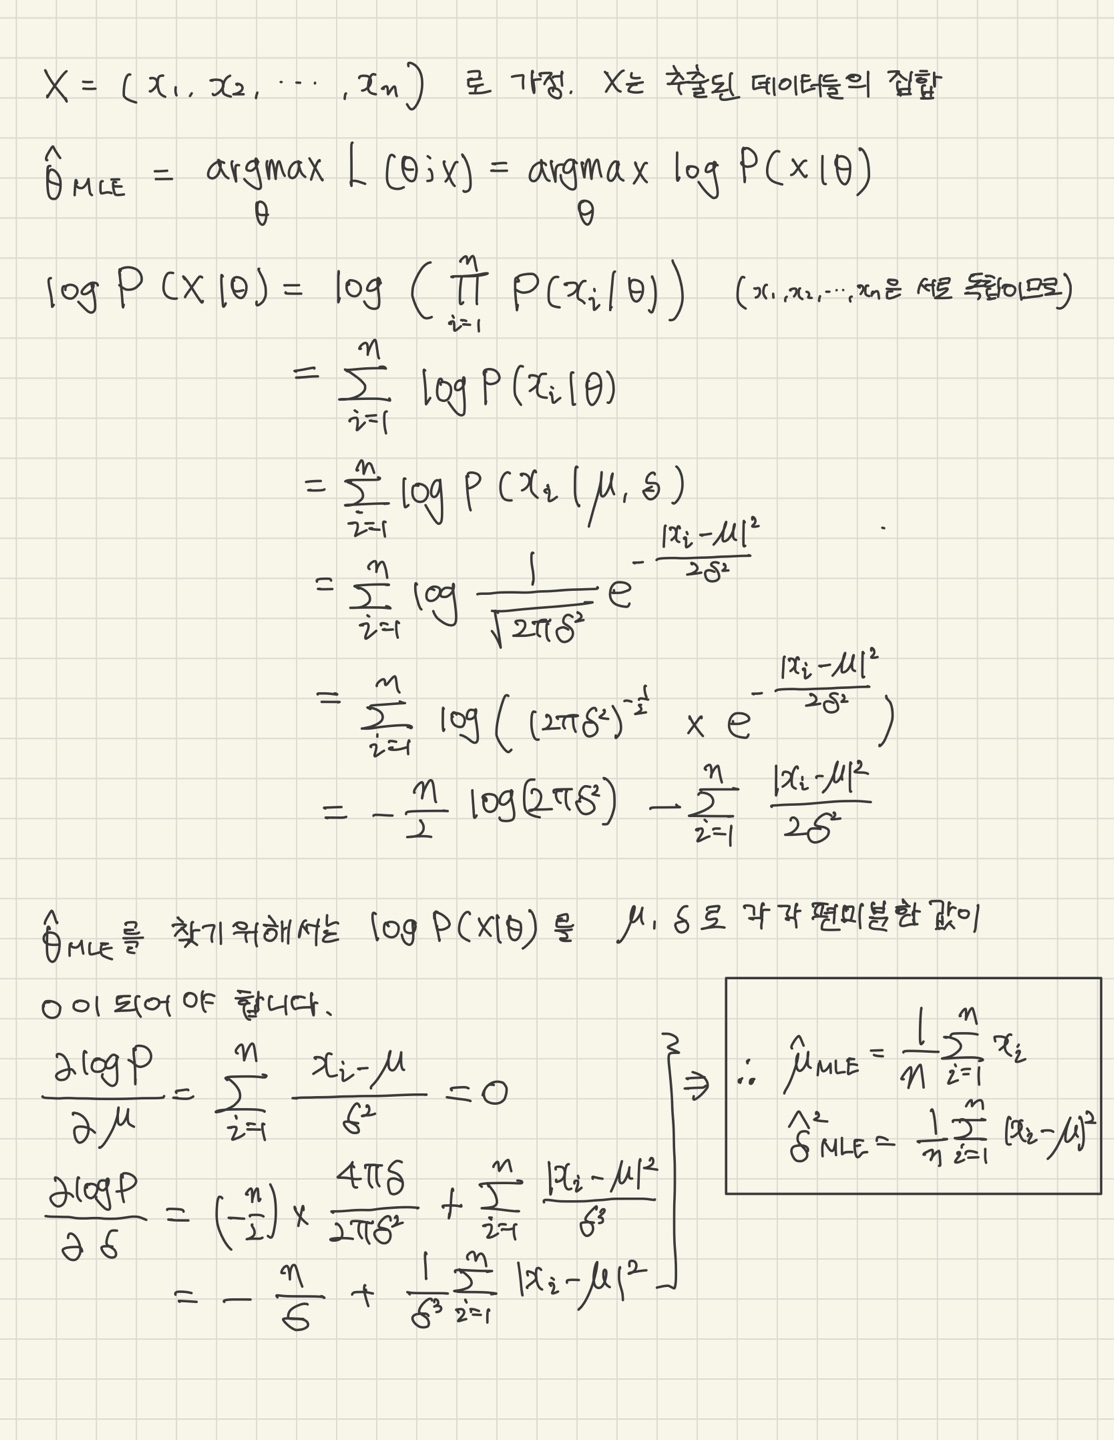 X = (x₁, x₂, ⋯, xₙ) 로 가정. X는 추출된 데이터들의 집합
θ̂ MLE = argmax_θ L(θ;x) = argmax_θ log P(X|θ)
log P(X|θ) = log ( ∏_{i=1}^{n} P(xᵢ|θ) ) (x₁, x₂, ⋯, xₙ은 서로 독립이므로)
= ∑_{i=1}^{n} log P(xᵢ|θ)
= ∑_{i=1}^{n} log P(xᵢ|μ, δ)
= ∑_{i=1}^{n} log 1/√(2πδ²) e^{-|xᵢ-μ|²/2δ²}
= ∑_{i=1}^{n} log( (2πδ²)^{-1/2} × e^{-|xᵢ-μ|²/2δ²} )
= - n/2 log(2πδ²) - ∑_{i=1}^{n} |xᵢ-μ|²/2δ²
θ̂ MLE를 찾기 위해서는 log P(X|θ) 를 μ, δ로 각각 편미분한 값이
0이 되어야 합니다.
∂log P/∂μ = ∑_{i=1}^{n} (xᵢ-μ)/δ² = 0
∂log P/∂δ = (-n/2) × 4πδ/2πδ² + ∑_{i=1}^{n} |xᵢ-μ|²/δ³
= - n/δ + 1/δ³ ∑_{i=1}^{n} |xᵢ-μ|²
⇒ ∴ μ̂ MLE = 1/n ∑_{i=1}^{n} xᵢ
δ̂² MLE = 1/n ∑_{i=1}^{n} (xᵢ-μ)²